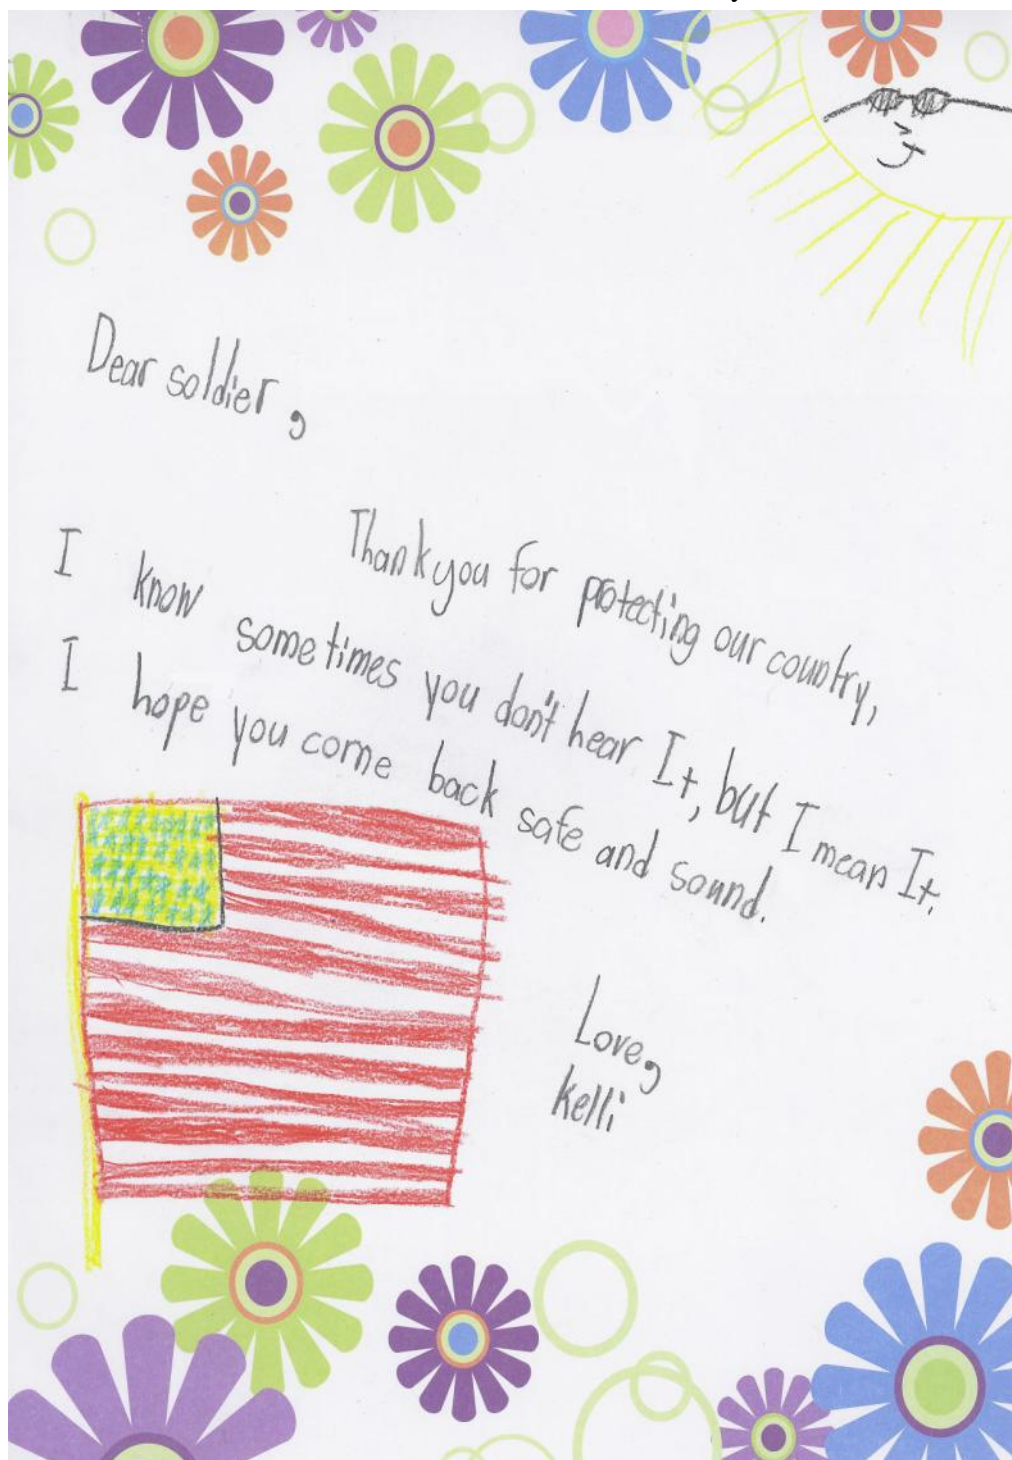 Dear soldier,
Thank you for protecting our country,
I know sometimes you don't hear It, but I mean It.
I hope you come back safe and sound.
Love,
Kelli